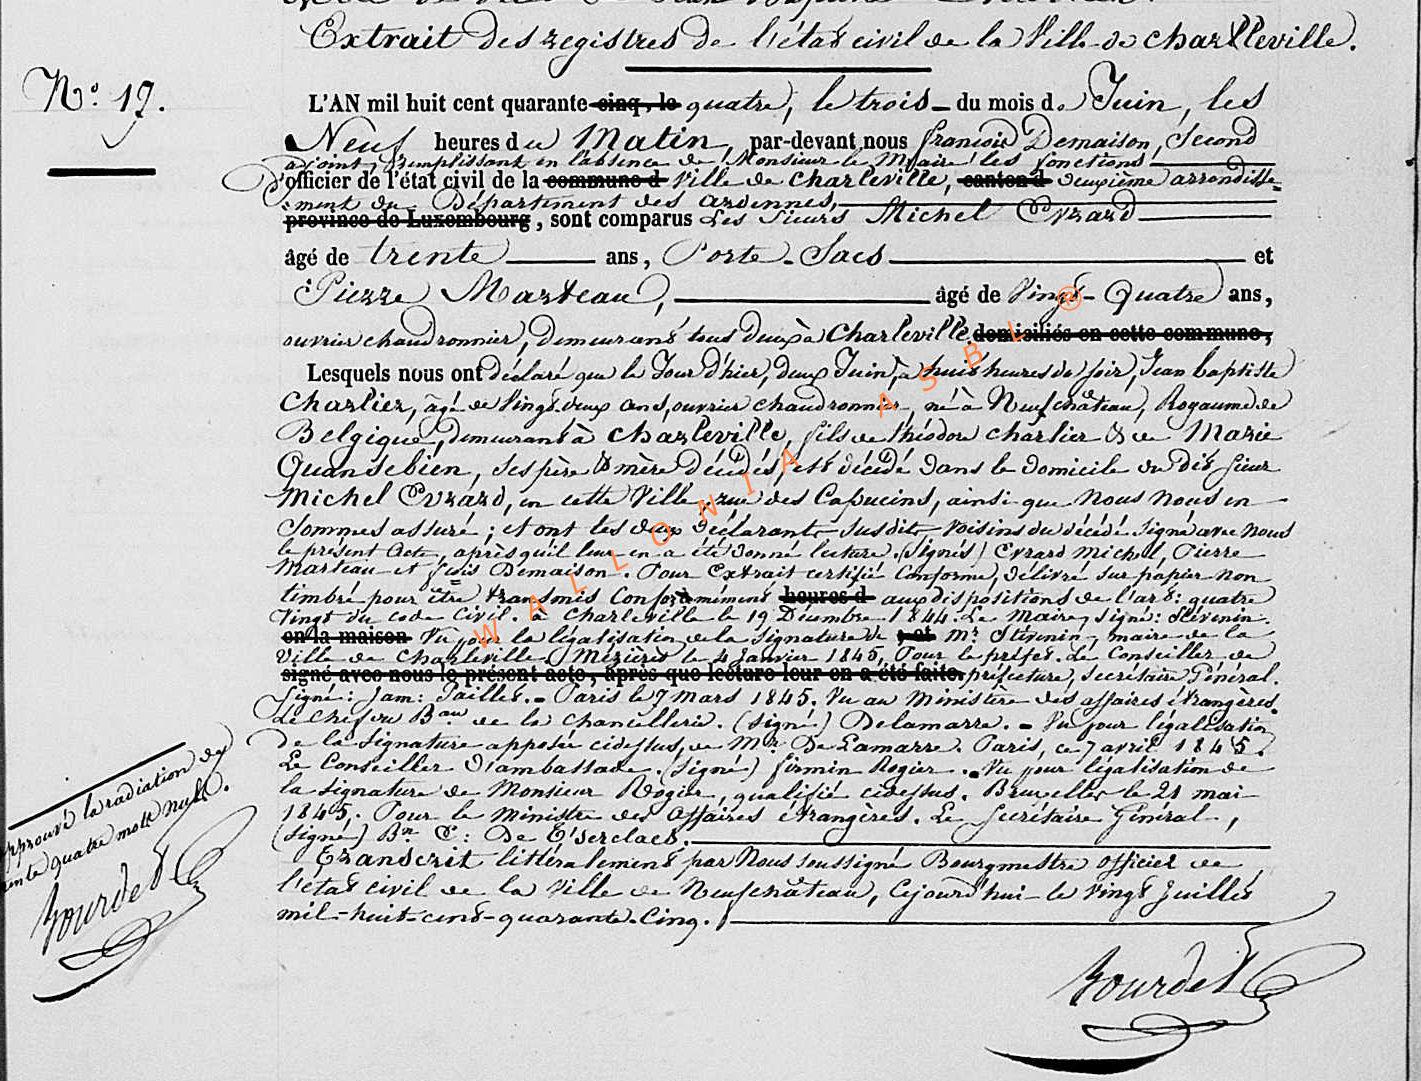 Extrait des registres de l'état civil de la Ville de Charleville.
N.° 17.
L'AN mil huit cent quarante cinq, le quatre, le trois du mois de Juin, les
Neuf heures du Matin, par-devant nous françois Demaison, Second
adjoint, remplissant en l'absence de Monsieur le Maire les fonctions
d'officier de l'état civil de la commune d Ville de Charleville, canton d deuxième arrondisse=
=ment du Département des ardennes,
province de Luxembourg, sont comparus Les Sieurs Michel Evrard
âgé de trente ans, Porte-Sacs et
Pierre Marteau, âgé de Vingt-Quatre ans,
ouvrier chaudronnier, demeurant tous deux à Charleville, domiciliés en cette commune,
Lesquels nous ont déclaré que le Jour d'hier, deux Juin, à huit heures du soir, Jean baptiste
Charlier, âgé de Vingt-deux ans, ouvrier chaudronnier, né à Neufchâteau, Royaume de
Belgique, demeurant à Charleville, fils de théodore charlier & de Marie
Quansebien, ses père & mère décédés, est décédé dans le domicile du dit sieur
Michel Evrard, en cette Ville, rue des Capucins, ainsi que Nous Nous en
Sommes assuré; et ont les deux déclarants susdits voisins du décédé signé avec Nous
le présent Acte, après qu'il leur en a été donné lecture. (Signés) Evrard Michel, Pierre
Marteau et fçois Demaison. Pour Extrait certifié Conforme, délivré sur papier non
timbré pour être transmis Conformément heures d aux dispositions de l'art: quatre
Vingt du code civil. à Charleville le 19 Décembre 1844. Le Maire, signé: Stévenin.
en la maison Vu pour la légalisation de la signature de Mr. Stévenin, maire de la
Ville de Charleville. Mézières le 4 Janvier 1845, Pour le préfet. Le Conseiller de
signé avec nous le présent acte, après que lecture leur en a été faite. préfecture, secrétaire Général.
Signé: Jam: Pailles. Paris le 7 Mars 1845. Vu au Ministère des affaires étrangères.
Le Chef du Bau de la Chancellerie. (signé) Delamarre. Vu pour légalisation
de la Signature apposée cidessus, de Mr. De Lamarre. Paris, ce 7 avril 1845.
Le Conseiller d'ambassade. (signé) firmin Rogier. Vu pour légalisation de
la signature de Monsieur Rogier, qualifié cidessus. Bruxelles le 21 mai
1845. Pour le Ministre des Affaires étrangères. Le Secrétaire Général,
(signé) Bn. C: De T'serclaes.
Transcrit littéralement par Nous soussigné Bourgmestre officier de
l'état civil de la Ville de Neufchâteau, Cejourd'hui le Vingt Juillet
mil-huit-cent-quarante-Cinq.
approuvé la radiation de
trente quatre mots nuls.
Bourdet
Bourdet
WALLONIA ASBL ®